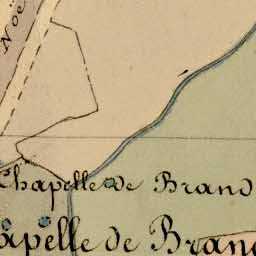 Noë
Chapelle de Brand
apelle de Brand